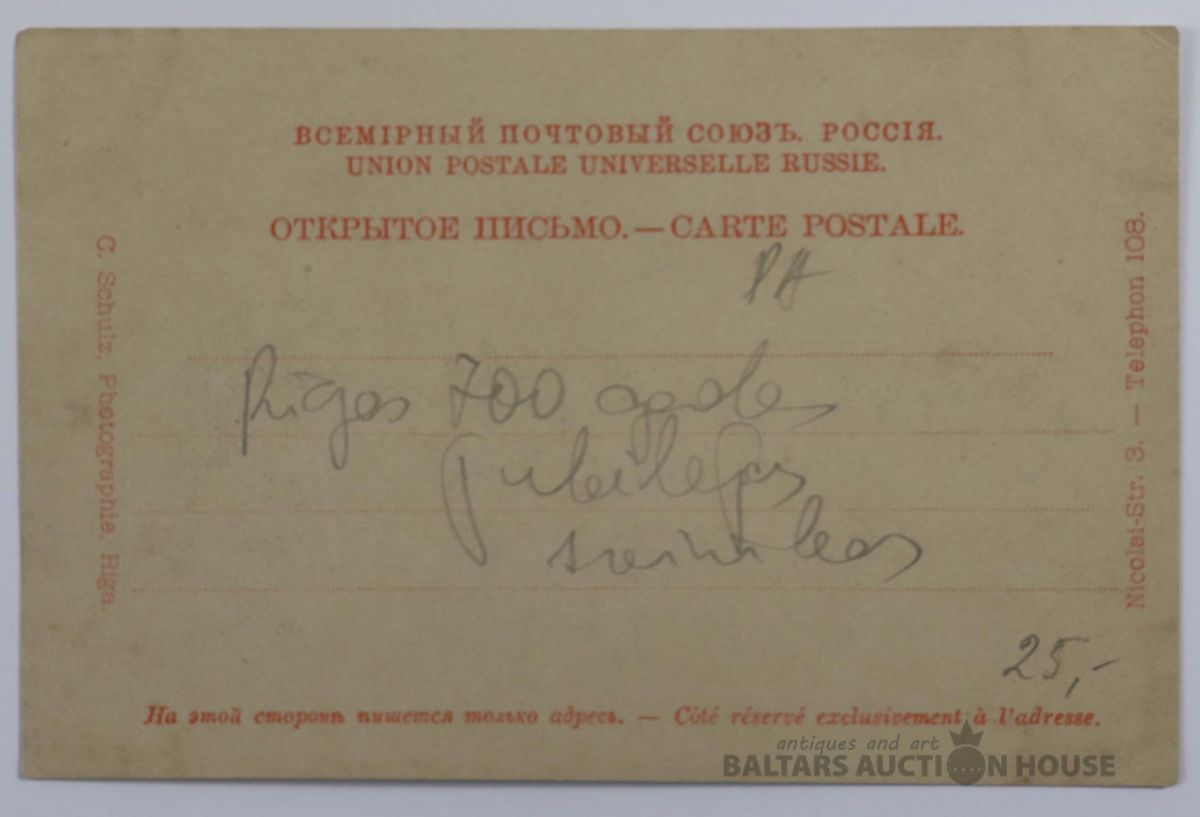 ВСЕМІРНЫЙ ПОЧТОВЫЙ СОЮЗЪ. РОССІЯ.
UNION POSTALE UNIVERSELLE RUSSIE.
ОТКРЫТОЕ ПИСЬМО. — CARTE POSTALE.
PA
Rīgas 700 gades
jubilejas
svinības
25,-
C. Schulz, Photographie, Riga.
Nicolai-Str. 3. — Telephon 108.
На этой сторонѣ пишется только адресъ. — Côté réservé exclusivement à l'adresse.
antiques and art
BALTARS AUCTION HOUSE